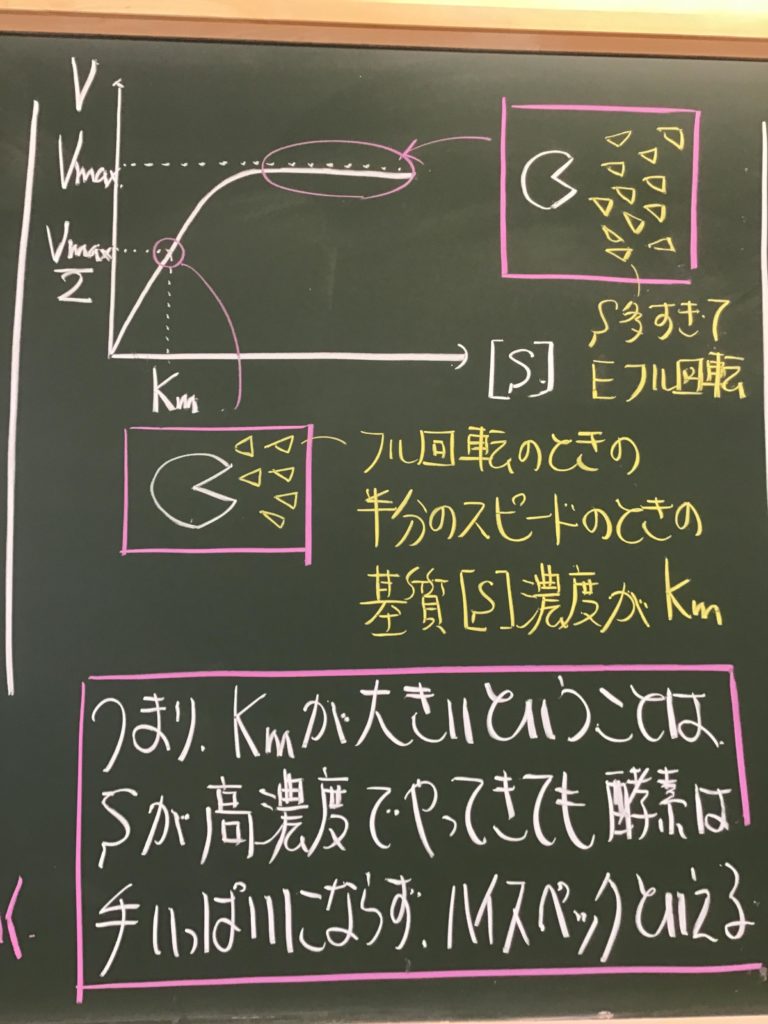 V
Vmax
Vmax
2
Km
[S]
S多すぎて
Eフル回転
フル回転のときの
半分のスピードのときの
基質[S]濃度がKm
つまり、Kmが大きいということは
Sが高濃度でやってきても酵素は
手いっぱいにならず、ハイスペックといえる